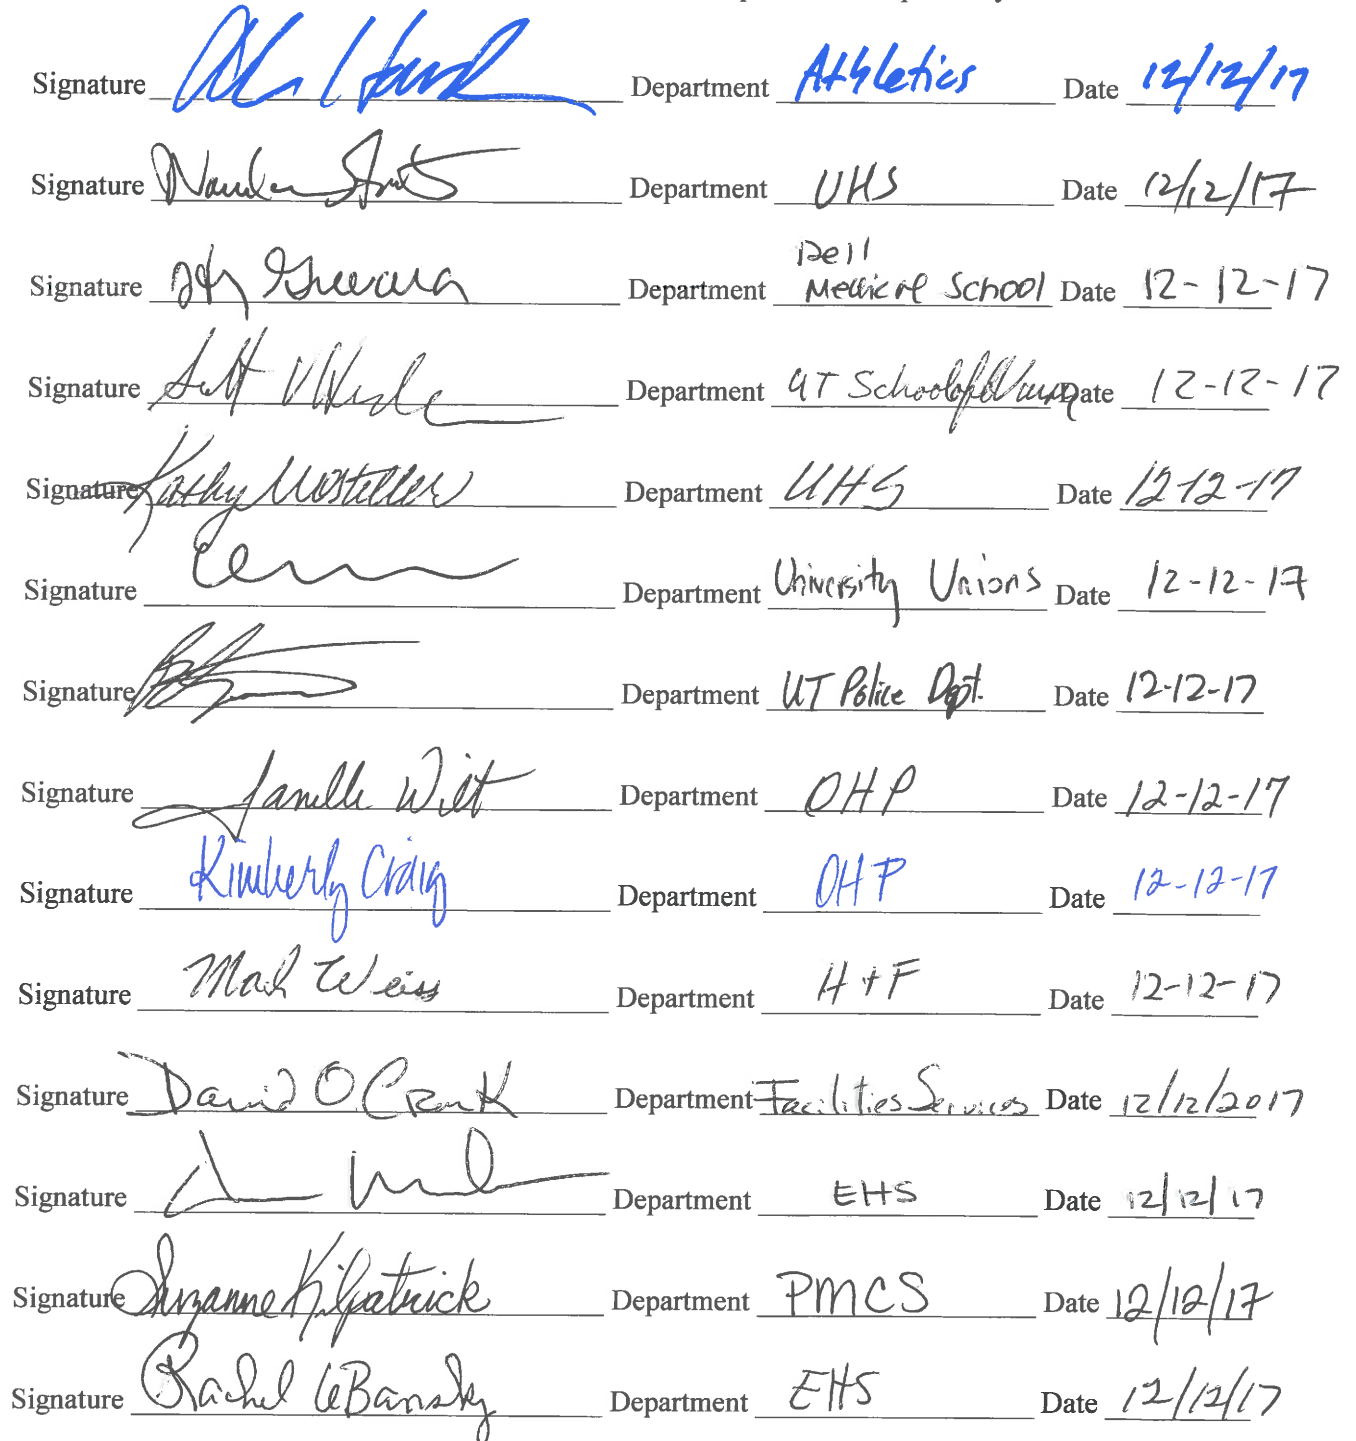 Signature Department Athletics Date 12/12/17
Signature Department UHS Date 12/12/17
Dell
Signature Department Medical School Date 12-12-17
Signature Department UT School of Nursing Date 12-12-17
Signature Kathy Mosteller Department UHS Date 12-12-17
Signature Department University Unions Date 12-12-17
Signature Department UT Police Dept. Date 12-12-17
Signature Janelle Wilt Department OHP Date 12-12-17
Signature Kimberly Craig Department OHP Date 12-12-17
Signature Mark Weiss Department H+F Date 12-12-17
Signature David O. Cronk Department Facilities Services Date 12/12/2017
Signature Department EHS Date 12/12/17
Signature Suzanne Kilpatrick Department PMCS Date 12/12/17
Signature Rachel LeBansky Department EHS Date 12/12/17